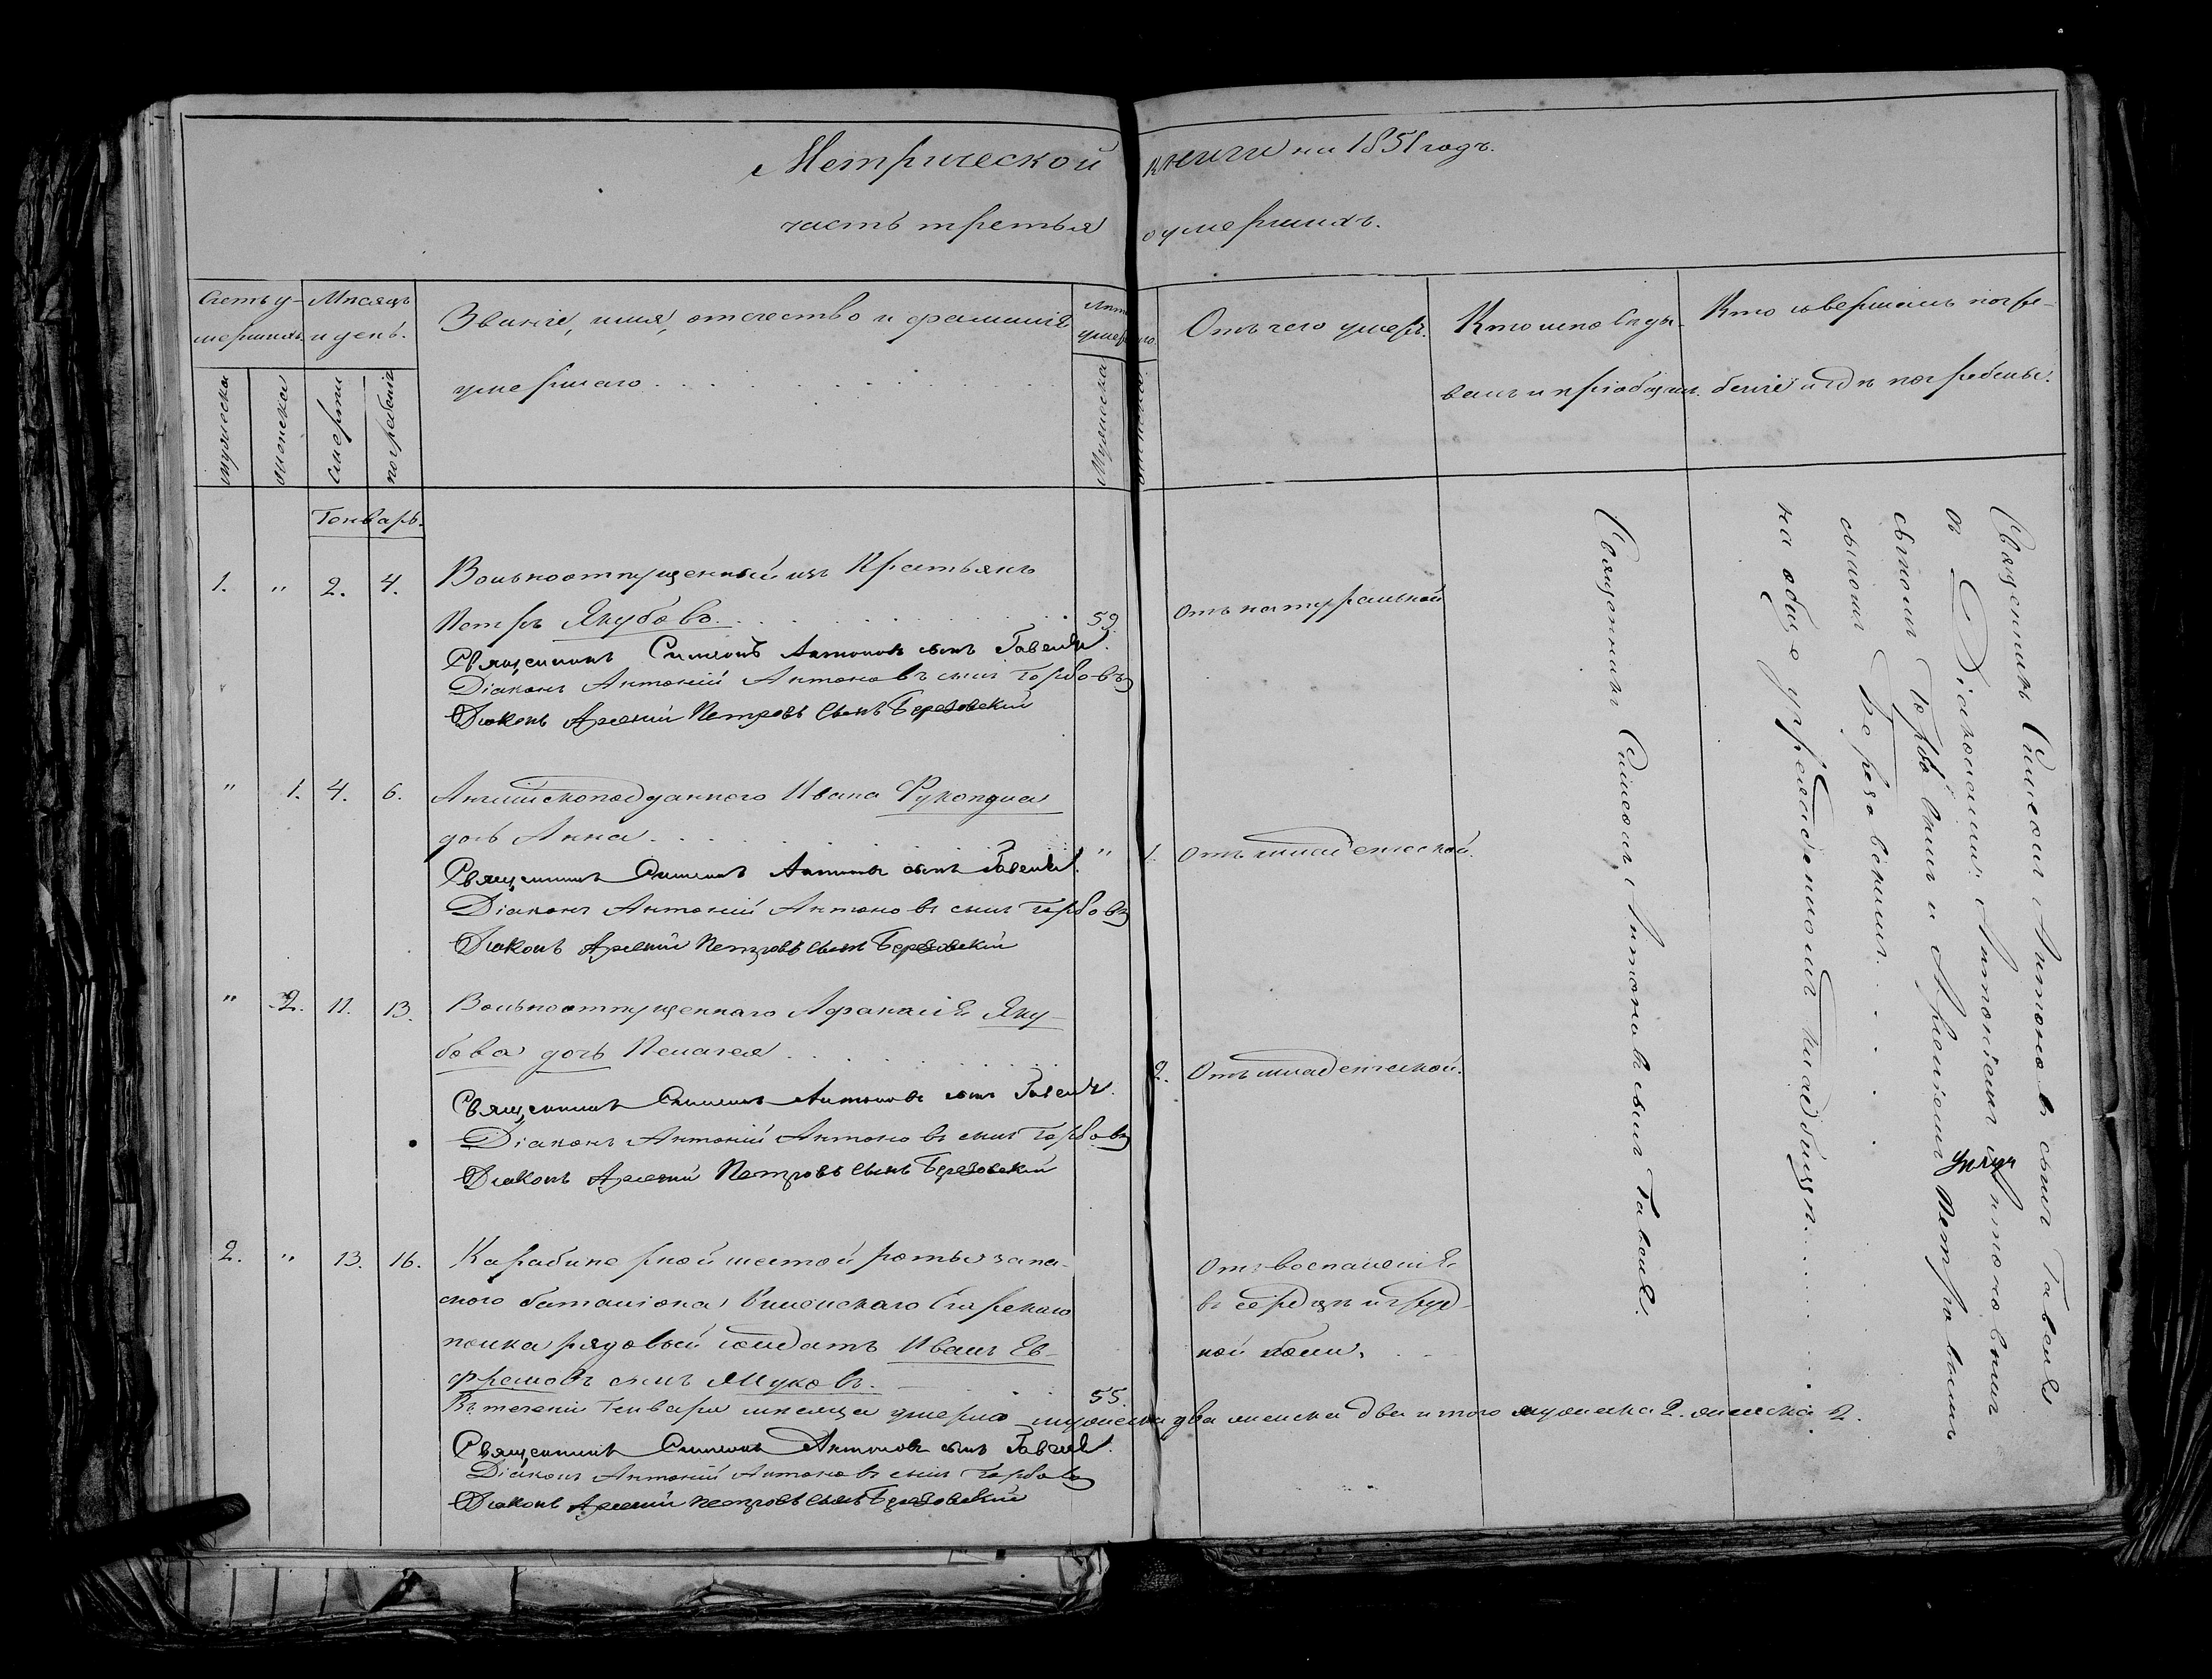 Метрической книги на 1851 годъ.
часть третья о умершихъ.
Счетъ у-
мершихъ.
Мѣсяцъ
и день.
Званіе, имя, отчество и фамилія
умершаго
Лѣта
умершаго.
Отъ чего умеръ.
Кто исповѣды-
валъ и пріобщалъ.
Кто совершалъ погре-
беніе и гдѣ погребены.
мужеска
женска
смерти
погребенія
Мужеска
женска
Генварь.
1. " 2. 4. Вольноотпущенный изъ Крестьянъ
Петръ Якубовъ. 59. Отъ натуральной
Священникъ Симеонъ Антоновъ сынъ
Діаконъ Антоній Антоновъ сынъ Горбовъ
Діаконъ Арсеній Петровъ сынъ Березовскій
" 1. 4. 6. Англійскоподданного Ивана
дочь Анна " 1. Отъ младенческой.
Священникъ Симеонъ Антоновъ сынъ
Діаконъ Антоній Антоновъ сынъ Горбовъ
Діаконъ Арсеній Петровъ сынъ Березовскій
" 2. 11. 13. Вольноотпущеннаго Афанасія Яку-
бова дочь Пелагея 2. Отъ младенческой.
Священникъ Симеонъ Антоновъ сынъ
Діаконъ Антоній Антоновъ сынъ Горбовъ
Діаконъ Арсеній Петровъ сынъ Березовскій
2. " 13. 16. Карабинерной шестой роты запа-
сного баталіона Егерскаго
полка рядовый солдатъ Иванъ Ев-
фремовъ сынъ 55.
Отъ воспаленія
въ сердцѣ и груд-
ной боли.
Въ теченіи Генваря мѣсяца умерло мужеска два женска два итого мужеска 2. женска 2.
Священникъ Симеонъ Антоновъ сынъ
Діаконъ Антоній Антоновъ сынъ Горбовъ
Діаконъ Арсеній Петровъ сынъ Березовскій
Священникъ Симеонъ Антоновъ сынъ
Священникъ Симеонъ Антоновъ сынъ
съ Діаконами: Антоніемъ Антоновымъ
сыномъ Горбовымъ и Арсеніемъ Петровымъ
сыномъ Березовскимъ.
на обще учрежденномъ кладбищѣ.